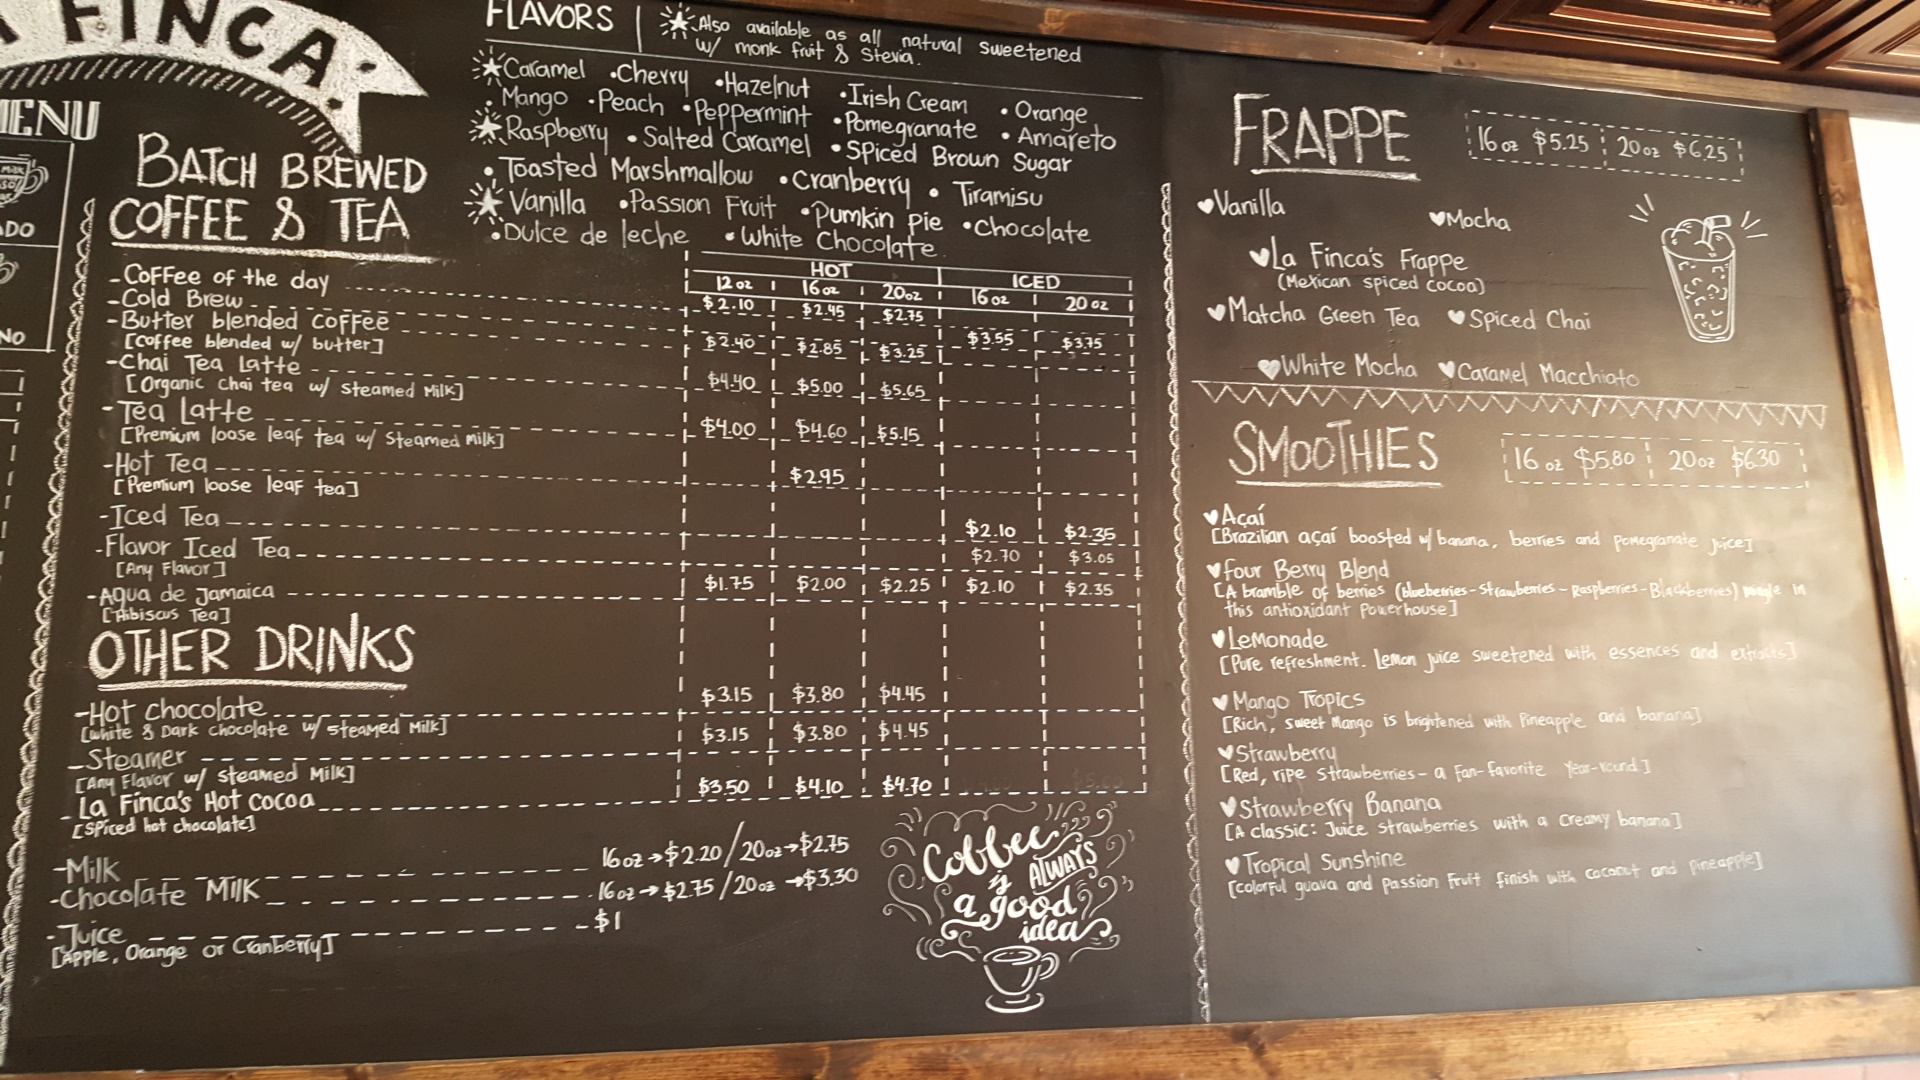 FINCA
MENU
ADO
NO
FLAVORS
Also available as all natural sweetened
w/ monk fruit & Stevia.
Caramel • Cherry • Hazelnut • Irish Cream • Orange
• Mango • Peach • Peppermint • Pomegranate • Amareto
Raspberry • Salted Caramel • Spiced Brown Sugar
• Toasted Marshmallow • Cranberry • Tiramisu
Vanilla • Passion Fruit • Pumkin pie • Chocolate
• Dulce de leche • White Chocolate
BATCH BREWED
COFFEE & TEA
HOT ICED
12 oz 16 oz 20oz 16 oz 20 oz
- Coffee of the day $2.10 $2.45 $2.75
- Cold Brew $3.55 $3.75
- Butter blended coffee $2.40 $2.85 $3.25
[coffee blended w/ butter]
- Chai Tea Latte $4.40 $5.00 $5.65
[Organic chai tea w/ steamed Milk]
- Tea Latte $4.00 $4.60 $5.15
[Premium loose leaf tea w/ steamed milk]
- Hot Tea $2.95
[Premium loose leaf tea]
- Iced Tea $2.10 $2.35
- Flavor Iced Tea $2.70 $3.05
[Any Flavor]
- Agua de Jamaica $1.75 $2.00 $2.25 $2.10 $2.35
[Hibiscus Tea]
OTHER DRINKS
- Hot chocolate $3.15 $3.80 $4.45
[white & Dark chocolate w/ steamed Milk]
- Steamer $3.15 $3.80 $4.45
[Any Flavor w/ steamed Milk]
- La Finca's Hot cocoa $3.50 $4.10 $4.70
[spiced hot chocolate]
- Milk 16oz → $2.20 / 20oz → $2.75
- Chocolate Milk 16oz → $2.75 / 20oz → $3.30
- Juice $1
[Apple, Orange or Cranberry]
Coffee
is ALWAYS
a good
idea
FRAPPE
16 oz $5.25 20 oz $6.25
Vanilla
Mocha
La Finca's Frappe
(Mexican spiced cocoa)
Matcha Green Tea Spiced Chai
White Mocha Caramel Macchiato
SMOOTHIES
16 oz $5.80 20oz $6.30
Açaí
[Brazilian açaí boosted w/ banana, berries and pomegranate juice]
Four Berry Blend
[A bramble of berries (blueberries - Strawberries - Raspberries - Blackberries) in
this antioxidant powerhouse]
Lemonade
[Pure refreshment. Lemon juice sweetened with essences and extracts]
Mango Tropics
[Rich, sweet Mango is brightened with Pineapple and banana]
Strawberry
[Red, ripe strawberries - a fan-favorite year-round]
Strawberry Banana
[A classic: Juice strawberries with a creamy banana]
Tropical Sunshine
[colorful guava and passion fruit finish with coconut and pineapple]